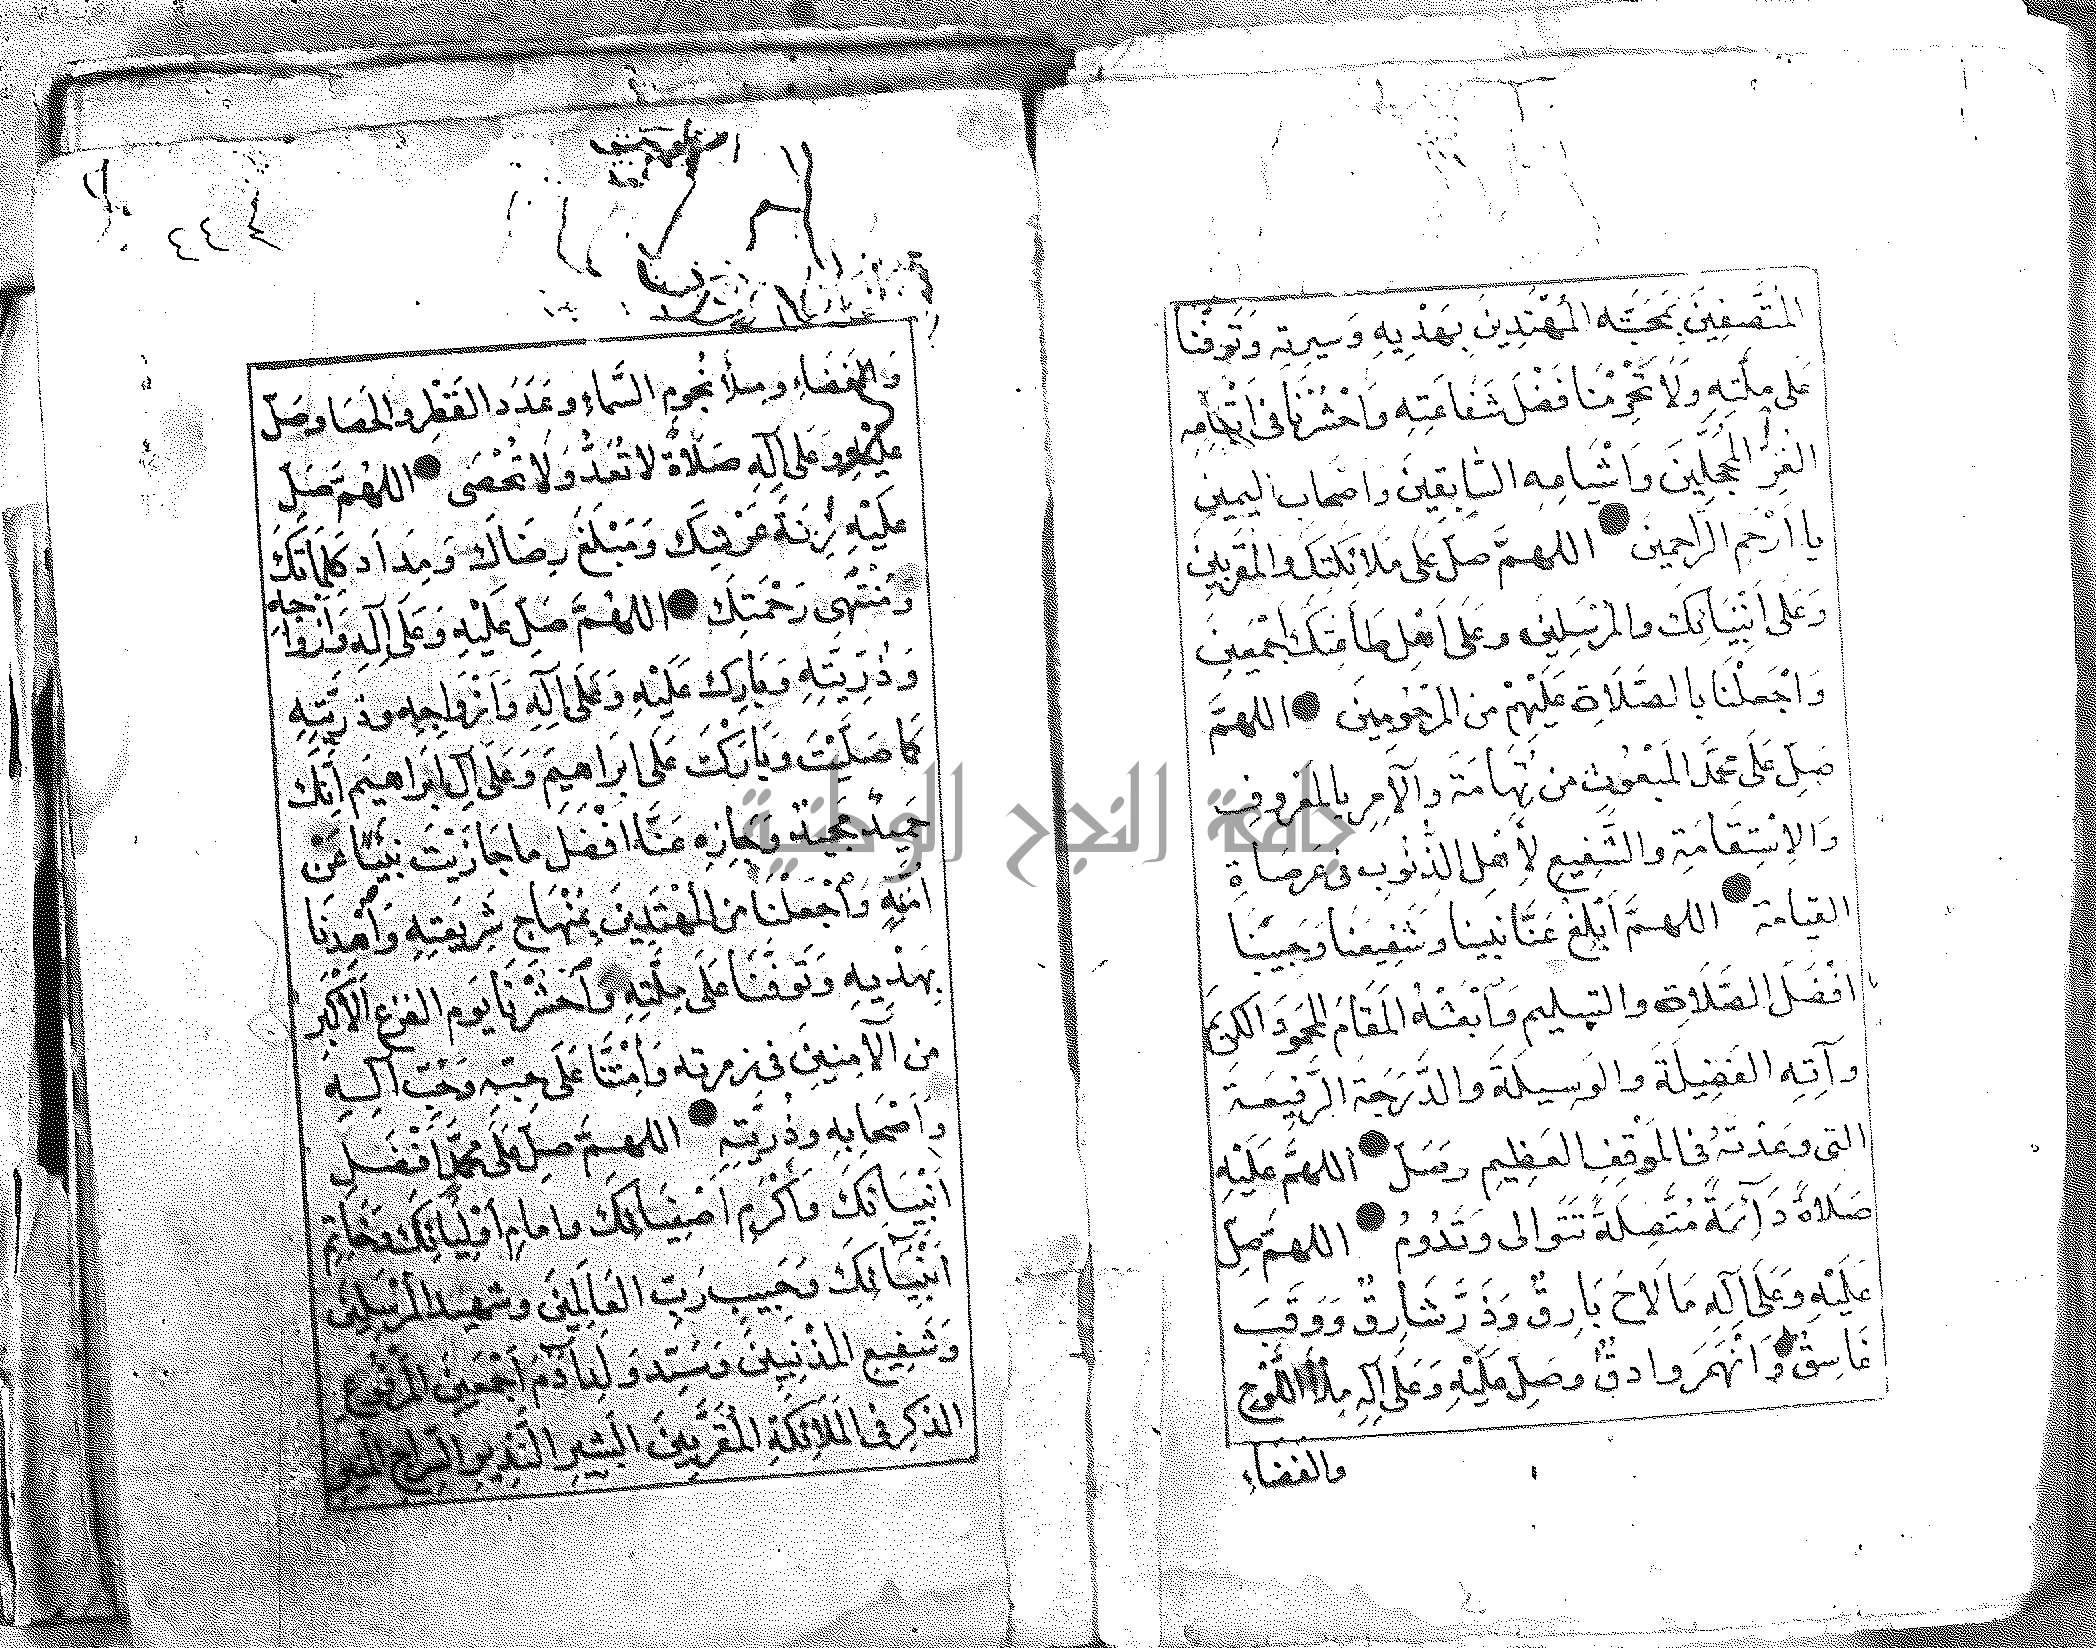 المتصفين بمحبته المهتدين بهديه وسيرته وتوفنا
على ملته ولا تحرمنا فضل شفاعته واحشرنا في اتباعه
الغر المحجلين واشياعه السابقين واصحاب اليمين
يا ارحم الراحمين اللهم صل على ملائكتك والمقربين
وعلى انبيائك والمرسلين وعلى اهل طاعتك اجمعين
واجعلنا بالصلاة عليهم من المرحومين اللهم
صل على محمد المبعوث من تهامة والآمر بالمعروف
والاستقامة والشفيع لأهل الذنوب في عرصاة
القيامة اللهم أبلغ عنا نبينا وشفيعنا وحبيبنا
افضل الصلاة والتسليم وآبعثه المقام المحمود الكريم
وآته الفضيلة والوسيلة والدرجة الرفيعة
التي وعدته في الموقف العظيم وصل اللهم عليه
صلاة دآئمة متصلة تتوالى وتدوم اللهم صل
عليه وعلى آله ما لاح بارق وذر شارق ووقب
غاسق وانهمر وادق وصل عليه وعلى آله ملأ اللوح
والفضاء
جامعة النجاح الوطنية
٤٤
والفضاء وملأ نجوم السماء وعدد القطر والحصا وصل
عليه وعلى آله صلاة لا تعد ولا تحصى اللهم صل
عليه زنة عرشك ومبلغ رضاك ومداد كلماتك
ومنتهى رحمتك اللهم صل عليه وعلى آله وازواجه
وذريته وبارك عليه وعلى آله وازواجه وذريته
كما صليت وباركت على ابراهيم وعلى آل ابراهيم انك
حميد مجيد وجازه عنا افضل ما جازيت نبيا عن
امته واجعلنا من المهتدين بمنهاج شريعته وآهدنا
بهديه وتوفنا على ملته وآحشرنا يوم الفزع الأكبر
من الآمنين في زمرته وأمتنا على حبه وحب آله
وأصحابه وذريته اللهم صل على محمد أفضل
انبيائك وأكرم اصفيائك وامام أوليائك وخاتم
انبيآئك وحبيب رب العالمين وشهيد المرسلين
وشفيع المذنبين وسيد ولد آدم اجمعين المرفوع
الذكر في الملائكة المقربين البشير النذير السراج المنير